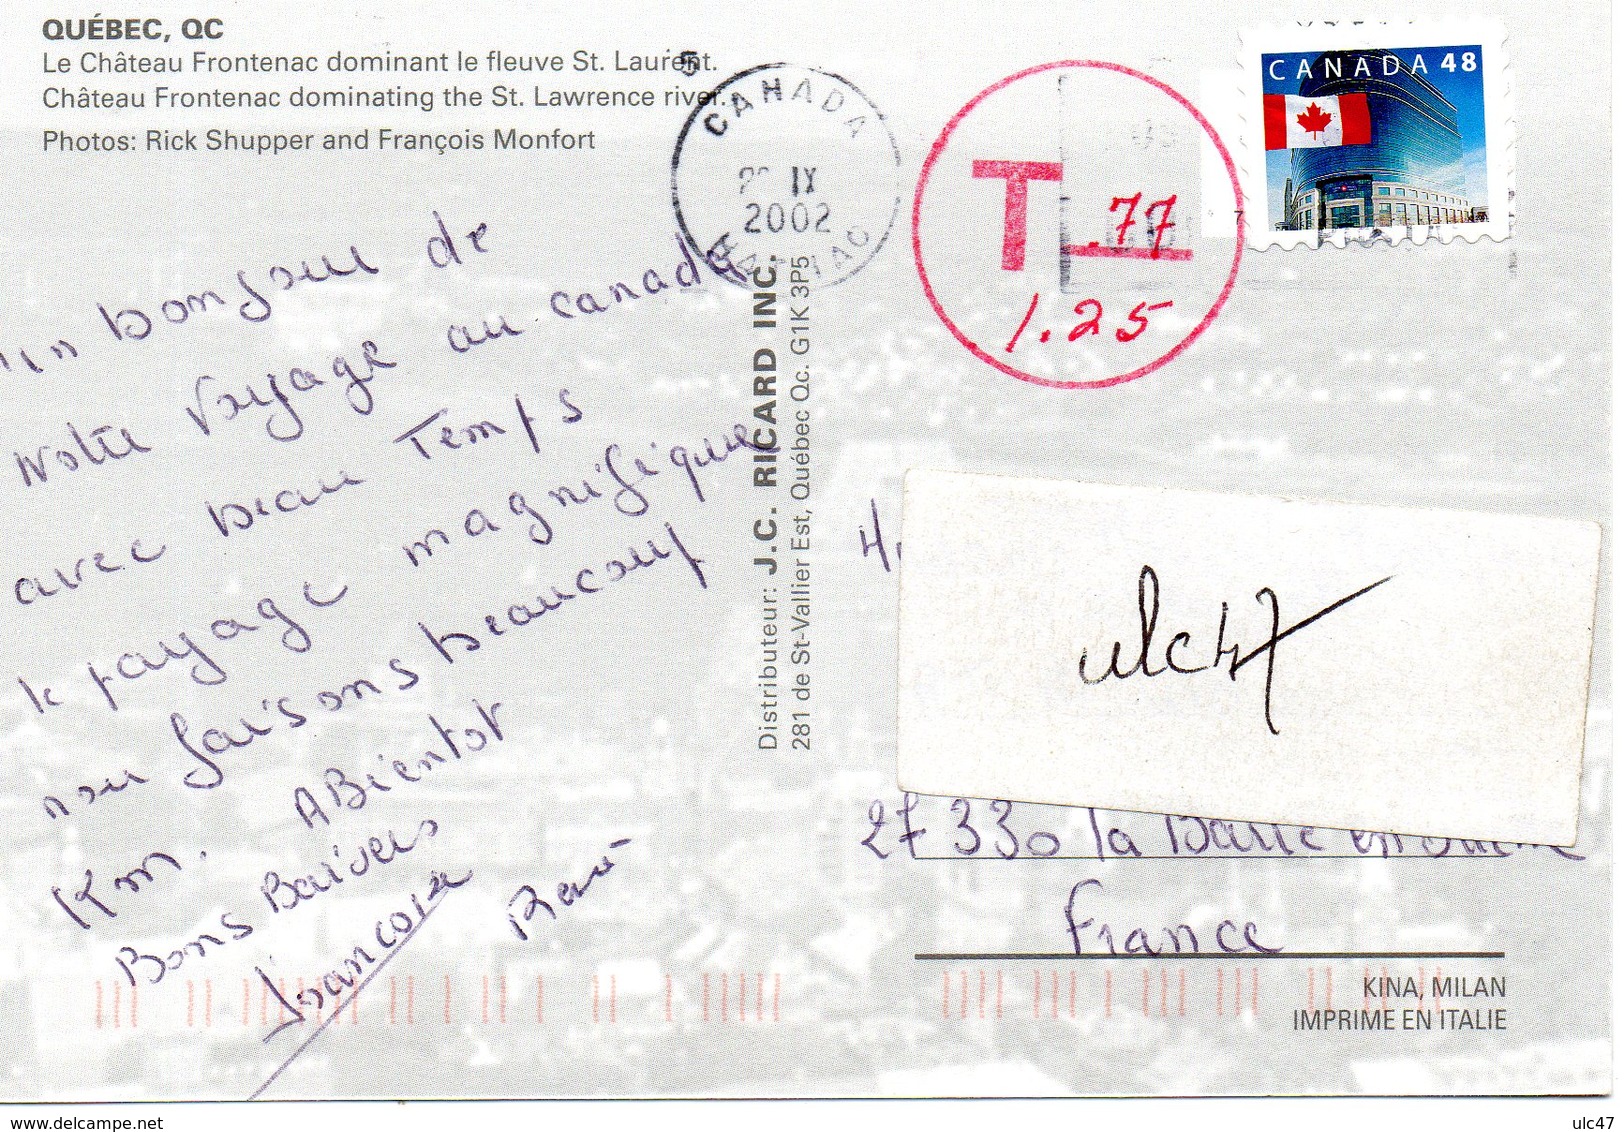 QUÉBEC, QC
Le Château Frontenac dominant le fleuve St. Laurent.
Château Frontenac dominating the St. Lawrence river.
Photos: Rick Shupper and François Monfort
CANADA
IX
2002
T .77
1.25
CANADA 48
un bonjour de
Notre Voyage au canada
avec beau Temps
le paysage magnifique
nou faisons beaucoup
Km. A Bientot
Bons Baisers
Francoise René
Distributeur: J.C. RICARD INC.
281 de St-Vallier Est, Québec Qc. G1K 3P5
ulc47
27 330 la Barre en
France
KINA, MILAN
IMPRIME EN ITALIE
www.delcampe.net
ulc47